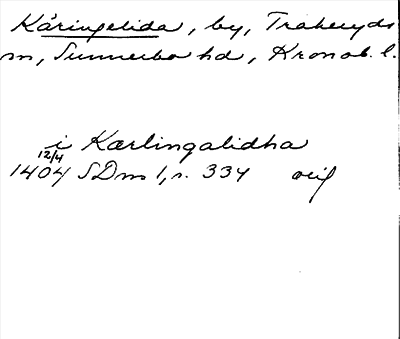 Käringelida, by, Traheryds
sn, Sunnerbo hd, Kronob. l.
i Kærlingalidha
12/4
1404 SDns 1, s. 334 orig